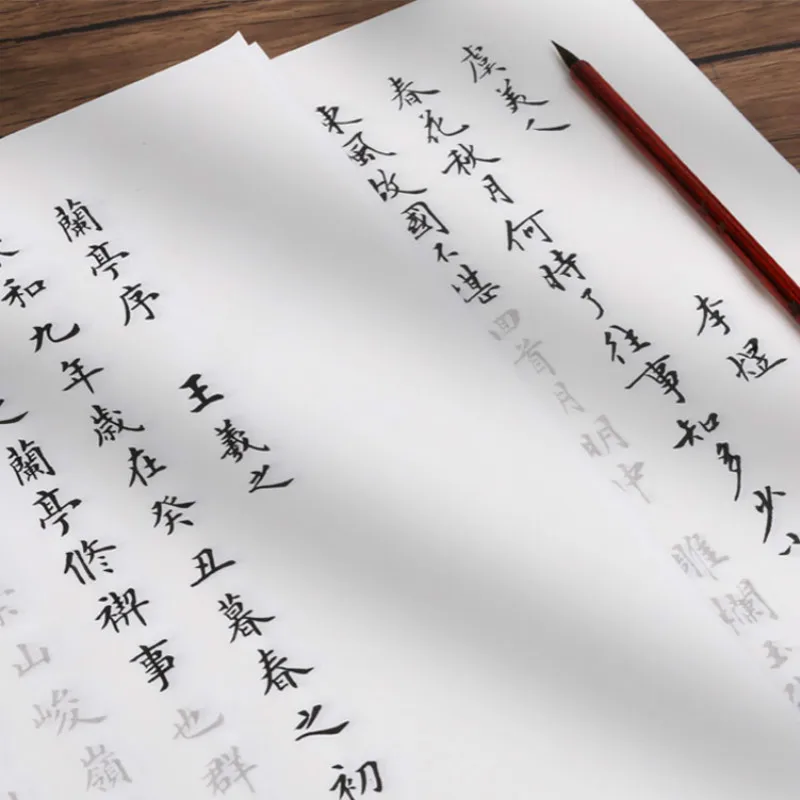 虞美人
李煜
春花秋月何時了往事知多少小
東風故國不堪回首月明中 雕欄玉
蘭亭序
王羲之
和九年歲在癸丑暮春之初
之蘭亭修禊事也群
山峻嶺